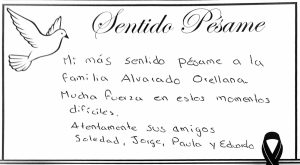 Sentido Pésame
Mi más sentido pésame a la
familia Alvarado Orellana
Mucha fuerza en estos momentos
difíciles.
Atentamente sus amigos
Soledad, Jorge, Paula y Eduardo